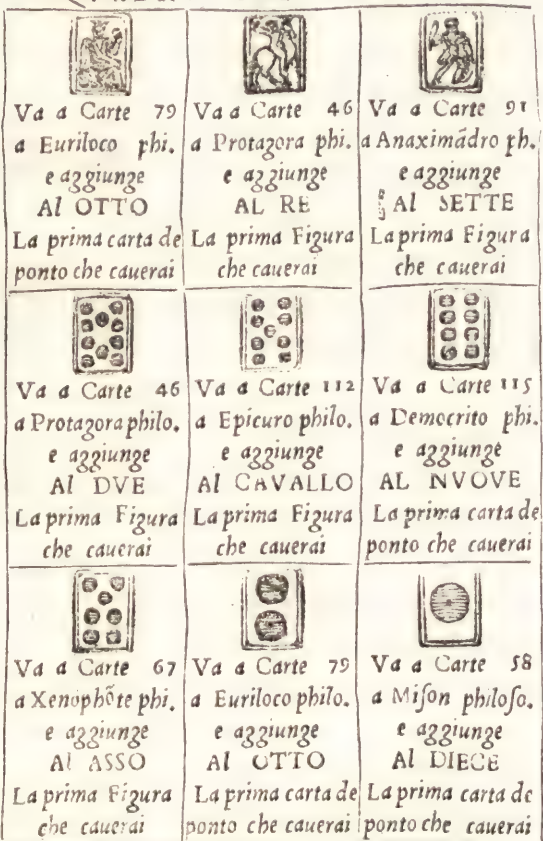 Va a Carte 79
a Euriloco phi.
e aggiunge
Al OTTO
La prima carta de
ponto che cauerai
Va a Carte 46
a Protagora phi.
e aggiunge
AL RE
La prima Figura
che cauerai
Va a Carte 91
a Anaximãdro ph.
e aggiunge
Al SETTE
La prima Figura
che cauerai
Va a Carte 46
a Protagora philo.
e aggiunge
Al DVE
La prima Figura
che cauerai
Va a Carte 112
a Epicuro philo.
e aggiunge
Al CAVALLO
La prima Figura
che cauerai
Va a Carte 115
a Democrito phi.
e aggiunge
AL NVOVE
La prima carta de
ponto che cauerai
Va a Carte 67
a Xenophõte phi.
e aggiunge
Al ASSO
La prima Figura
che cauerai
Va a Carte 79
a Euriloco philo.
e aggiunge
Al OTTO
La prima carta de
ponto che cauerai
Va a Carte 58
a Miſon philoſo.
e aggiunge
Al DIECE
La prima carta de
ponto che cauerai